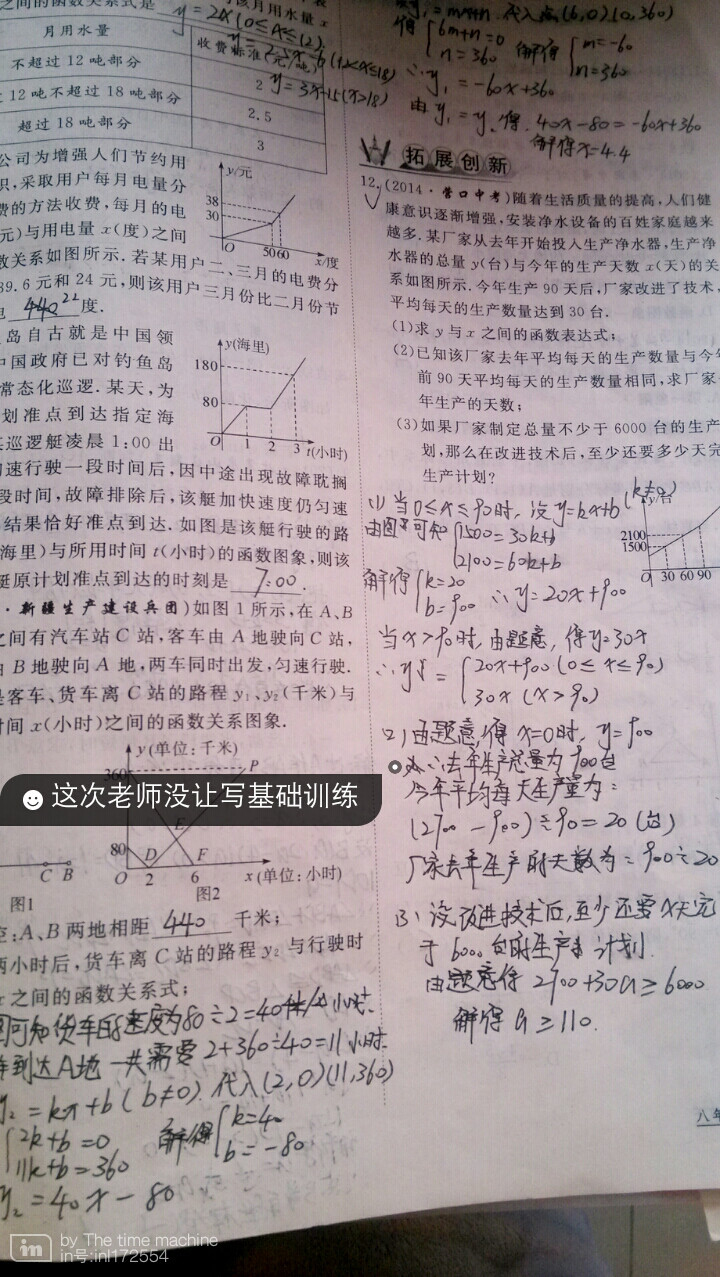 之间的函数关系式是
该月用水量 x
y=2x(0≤x≤12)
y=3x-15(x>18)
月用水量
收费标准(元/吨)
不超过 12 吨部分
2
过 12 吨不超过 18 吨部分
2.5
超过 18 吨部分
3
公司为增强人们节约用
识,采取用户每月电量分
费的方法收费,每月的电
元)与用电量 x(度)之间
数关系如图所示.若某用户二、三月的电费分
39.6 元和 24 元,则该用户三月份比二月份节
度.
y/元
38
30
O
50 60
x/度
岛自古就是中国领
中国政府已对钓鱼岛
常态化巡逻.某天,为
划准点到达指定海
巡逻艇凌晨 1:00 出
匀速行驶一段时间后,因中途出现故障耽搁
段时间,故障排除后,该艇加快速度仍匀速
结果恰好准点到达.如图是该艇行驶的路
海里)与所用时间 t(小时)的函数图象,则该
艇原计划准点到达的时刻是 7:00 .
y(海里)
180
80
O
1 2 3 t(小时)
·新疆生产建设兵团)如图 1 所示,在 A、B
之间有汽车站 C 站,客车由 A 地驶向 C 站,
由 B 地驶向 A 地,两车同时出发,匀速行驶.
是客车、货车离 C 站的路程 y₁、y₂(千米)与
时间 x(小时)之间的函数关系图象.
y(单位:千米)
360
P
E
80
D
F
O 2 6 x(单位:小时)
C B
图1
图2
空:A、B 两地相距 440 千米;
两小时后,货车离 C 站的路程 y₂ 与行驶时
x 之间的函数关系式;
可知货车的速度为80÷2=40千米/小时.
到达A地一共需要2+360÷40=11小时.
y₂=kx+b(b≠0).代入(2,0)(11,360)
2k+b=0
11k+b=360
解得
k=40
b=-80
y₂=40x-80
y₁=mx+n.代入点(6,0)(0,360)
得
6m+n=0
n=360
解得
m=-60
n=360
∴y₁=-60x+360
由y₁=y₂得.40x-80=-60x+360
解得x=4.4
拓展创新
12.(2014·营口中考)随着生活质量的提高,人们健
康意识逐渐增强,安装净水设备的百姓家庭越来
越多.某厂家从去年开始投入生产净水器,生产净
水器的总量 y(台)与今年的生产天数 x(天)的关
系如图所示.今年生产 90 天后,厂家改进了技术,
平均每天的生产数量达到 30 台.
(1)求 y 与 x 之间的函数表达式;
(2)已知该厂家去年平均每天的生产数量与今年
前 90 天平均每天的生产数量相同,求厂家
年生产的天数;
(3)如果厂家制定总量不少于 6000 台的生产
划,那么在改进技术后,至少还要多少天完
生产计划?
(1)当0≤x≤90时,设y=kx+b(k≠0)
由图可知
1500=30k+b
2100=60k+b
解得
k=20
b=900
∴y=20x+900
y/台
2100
1500
O 30 60 90
当x>90时,由题意,得y=30x
∴y=
20x+900(0≤x≤90)
30x(x>90)
(2)由题意,得x=0时,y=900
∴去年生产总量为900台
今年平均每天生产量为:
(2700-900)÷90=20(台)
厂家去年生产的天数为:900÷20
(3)设改进技术后,至少还要
6000台的生产计划.
由题意得2700+30a≥6000
解得a≥110.
这次老师没让写基础训练
八年
in by The time machine
in号:inl172554